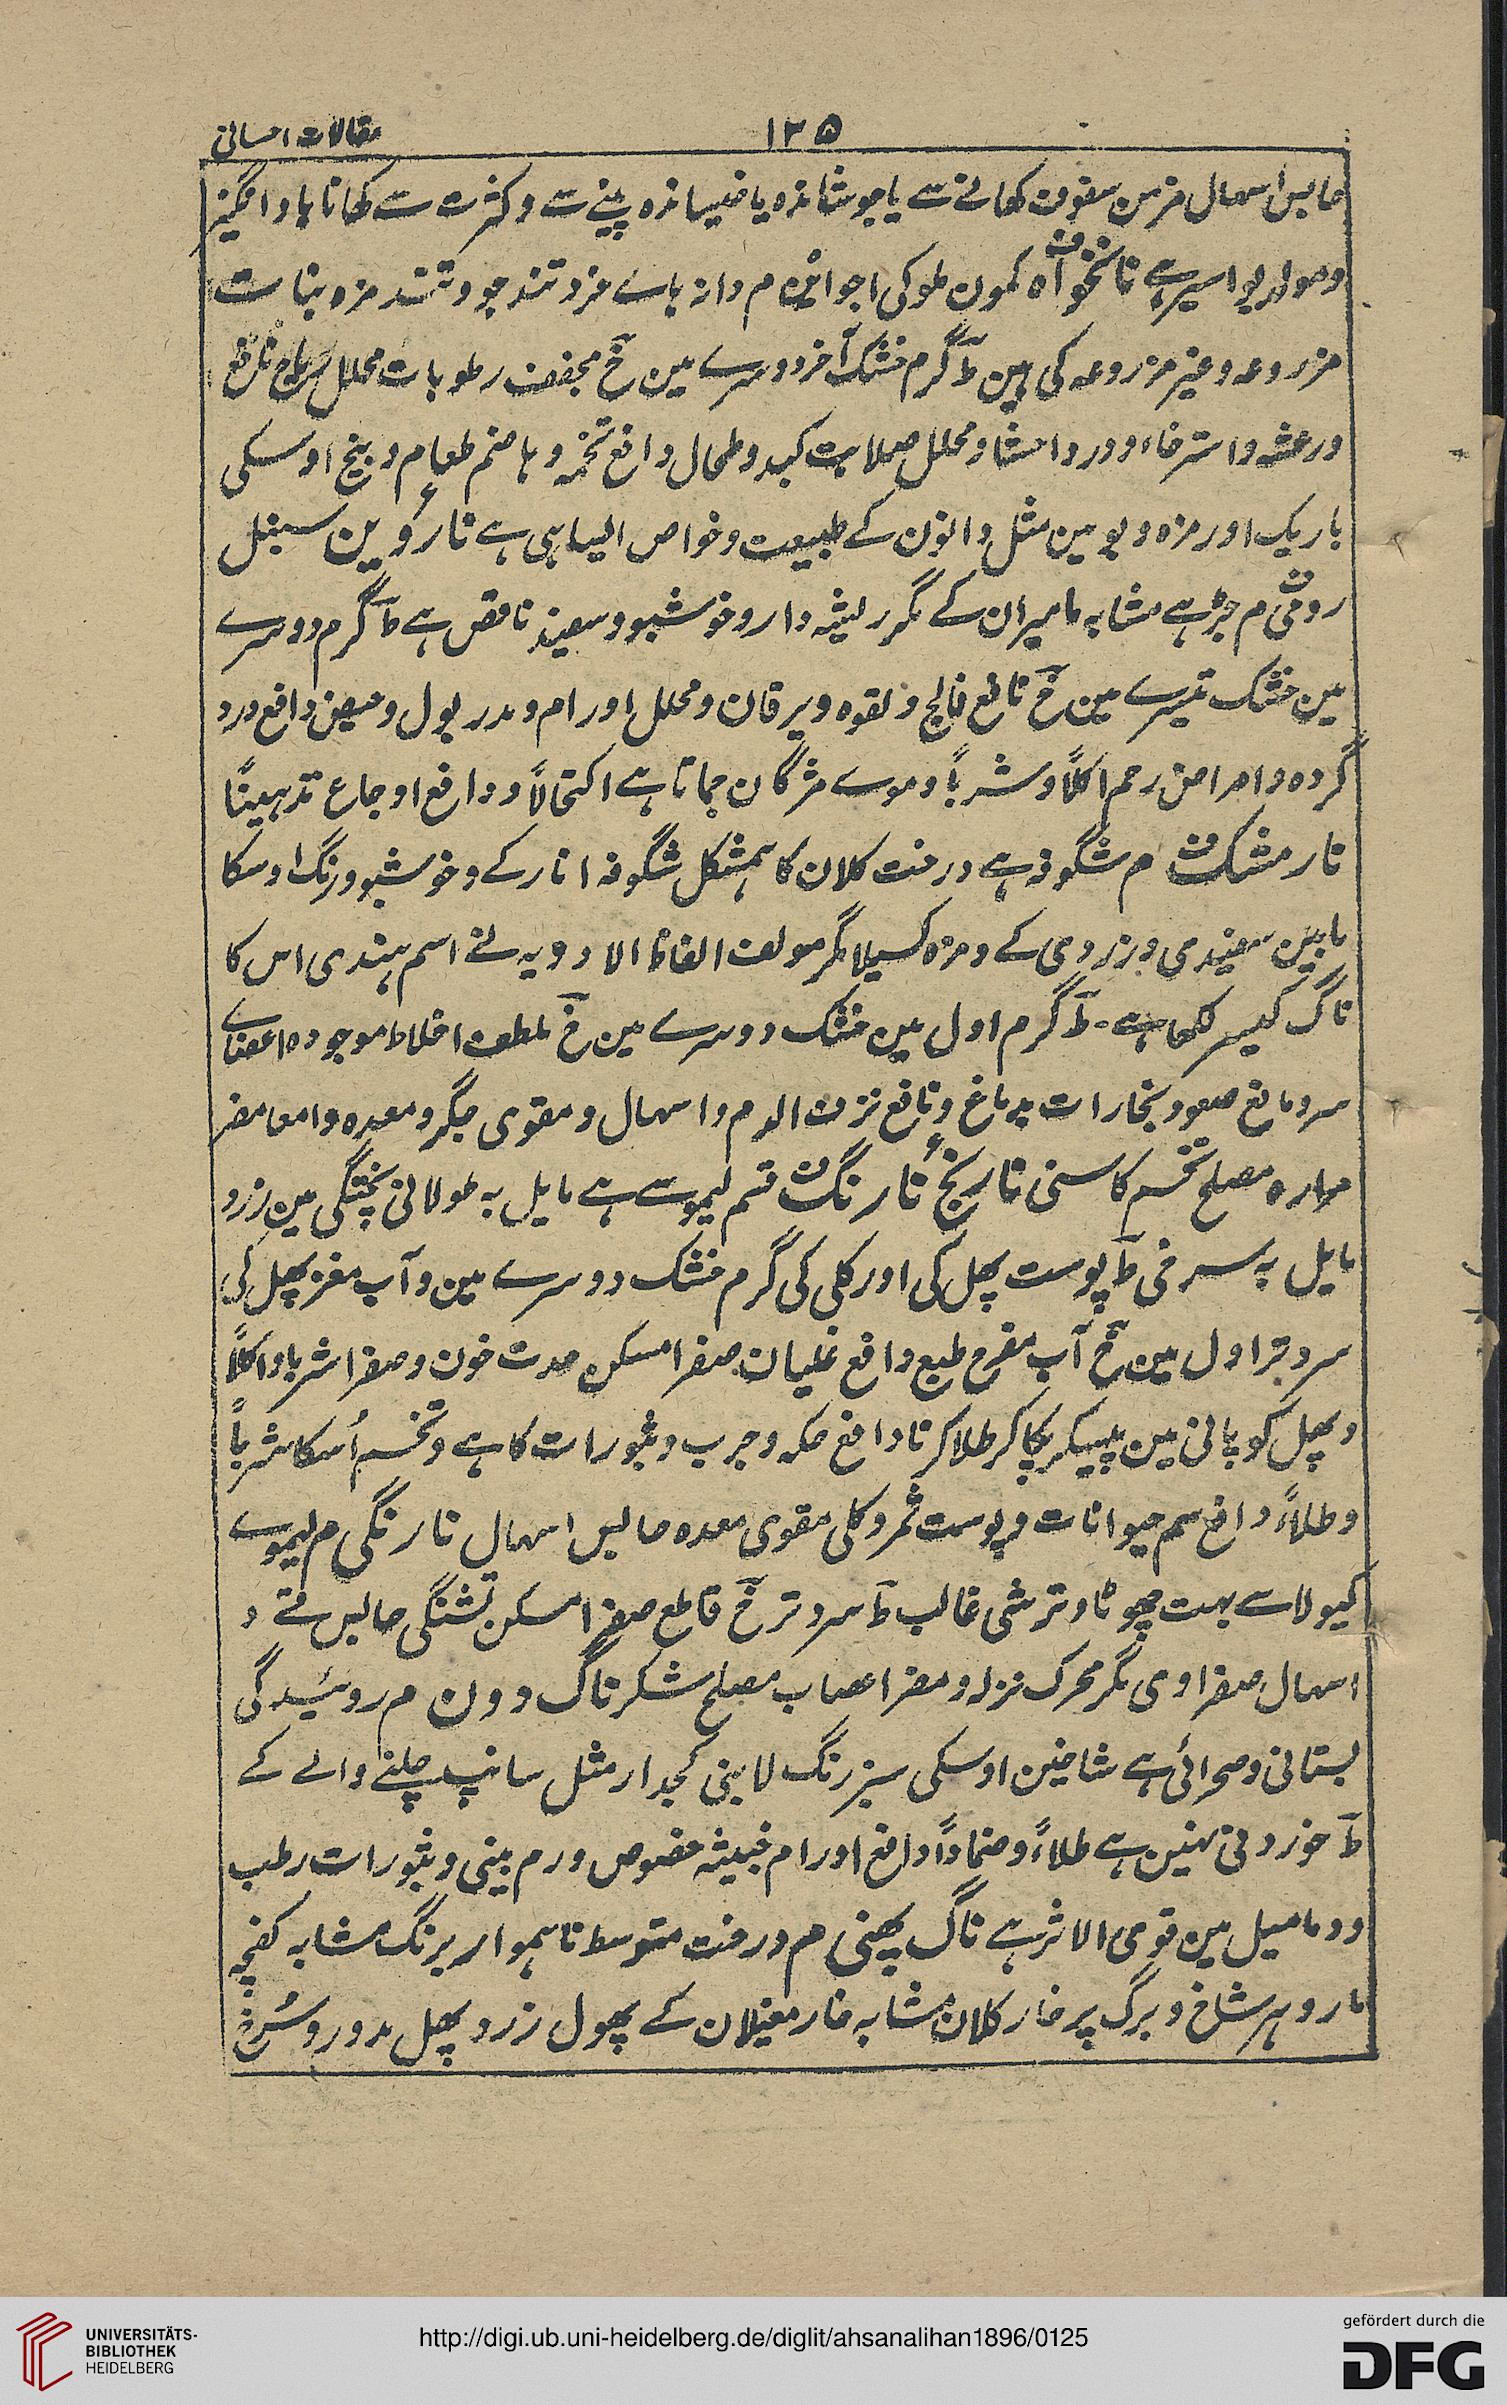 ۱۲۵
مقالات احسانی
حابس اسہال مزمن سفوف کھانے سے یا جوشاندہ یا خیساندہ پینے سے و کثرت سے کھانا باد انگیز
و مولد بواسیر ہے نانخواہ ف کمون ملوکی اجواین م دانہ ہاے خرد تند بو و تند مزہ نبات
مزروعہ و غیر مزروعہ کی ہین ط گرم خشک آخر دوسرے مین خ مجفف رطوبات محلل ریاح نافع
و رعشہ و استرخاء و درد احشا و محلل صلابت کبد و طحال دافع تخمہ و ہاضم طعام و بیخ اوسکی
باریک اور مزہ و بو مین مثل دانون کے طبیعت و خواص ایسا ہی ہے ناردین ع سنبل
رومی ف م جڑ ہے مشابہ مامیران کے مگر ریشہ دار و خوشبو و سفید ناقص ہے ط گرم دوسرے
مین خشک تیسرے مین خ نافع فالج و لقوہ و یرقان و محلل اورام و مدر بول و حیض دافع درد
گردہ و امراض رحم اکلاً و شرباً و موے مژگان جماتا ہے اکتحالاً و دافع اوجاع تدہیناً
نارمشک ف م شگوفہ ہے درخت کلان کا ہمشکل شگوفہ انار کے و خوشبو و رنگ اوسکا
مابین سفیدی و زردی کے و مزہ کسیلا مگر مولف الفاظ الادویہ نے اسم ہندی اس کا
ناگ کیسر لکھا ہے۔ ط گرم اول مین خشک دوسرے مین خ ملطف اخلاط موجودہ اعضاے
سر و مانع صعود بخارات بدماغ و نافع نزف الدم و اسہال و مقوی جگر و معدہ و امعا مضر
مرارہ مصلح تخم کاسنی نارنج ع نارنگ ف قسم لیمو سے ہے مایل بہ طولانی پختگی مین زرد
مایل بہ سرخی ط پوست پھل کی اور کلی کی گرم خشک دوسرے مین و آب مغز پھل کی
سرد تر اول مین خ آب مفرح طبع دافع غلیان صفرا مسکن حدت خون و صفرا شربا و اکلاً
و پھل کو پانی مین پیسکر پکا کر طلا کرنا دافع حکہ و جرب و بثورات کا ہے و تخم اُسکا شرباً
و طلاءً دافع سم حیوانات و پوست ثمر و کلی مقوی معدہ حابس اسہال نارنگی م لیموے
کیولا سے بہت چھوٹا و ترشی غالب ط سرد تر خ قاطع صفرا مسکن تشنگی حابس قے و
اسہال صفراوی مگر محرک نزلہ و مضر اعصاب مصلح شکر ناگ دون م روئیدگی
بستانی و صحرائی ہے شاخین اوسکی سبز رنگ لابنی کجدار مثل سانپ چلنے والے کے
ط خوردنی نہین ہے طلاءً و ضماداً دافع اورام خبیثہ خصوص ورم بینی و بثورات رطب
و دمامیل مین قوی الاثر ہے ناگ پھنی م درخت متوسط ناہموار برنگ مشابہ کفچہ
مار و ہر شاخ و برگ پر خار کلان مشابہ خار مغیلان کے پھول زرد پھل مدور و سُرخ
UNIVERSITÄTS-
BIBLIOTHEK
HEIDELBERG
http://digi.ub.uni-heidelberg.de/diglit/ahsanalihan1896/0125
gefördert durch die
DFG